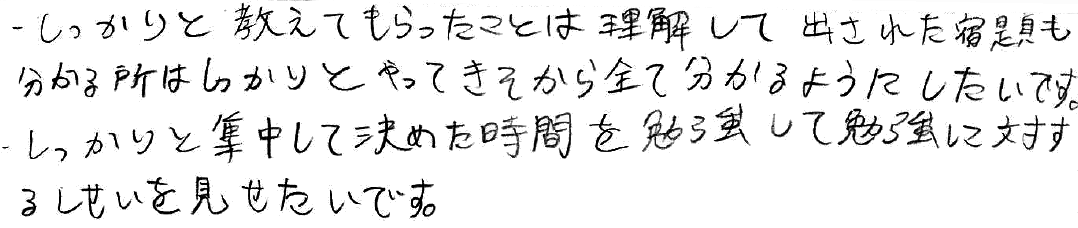 - しっかりと教えてもらったことは理解して出された宿題も
分かる所はしっかりとやってきそから全て分かるようにしたいです。
- しっかりと集中して決めた時間を勉強して勉強に対す
るしせいを見せたいです。